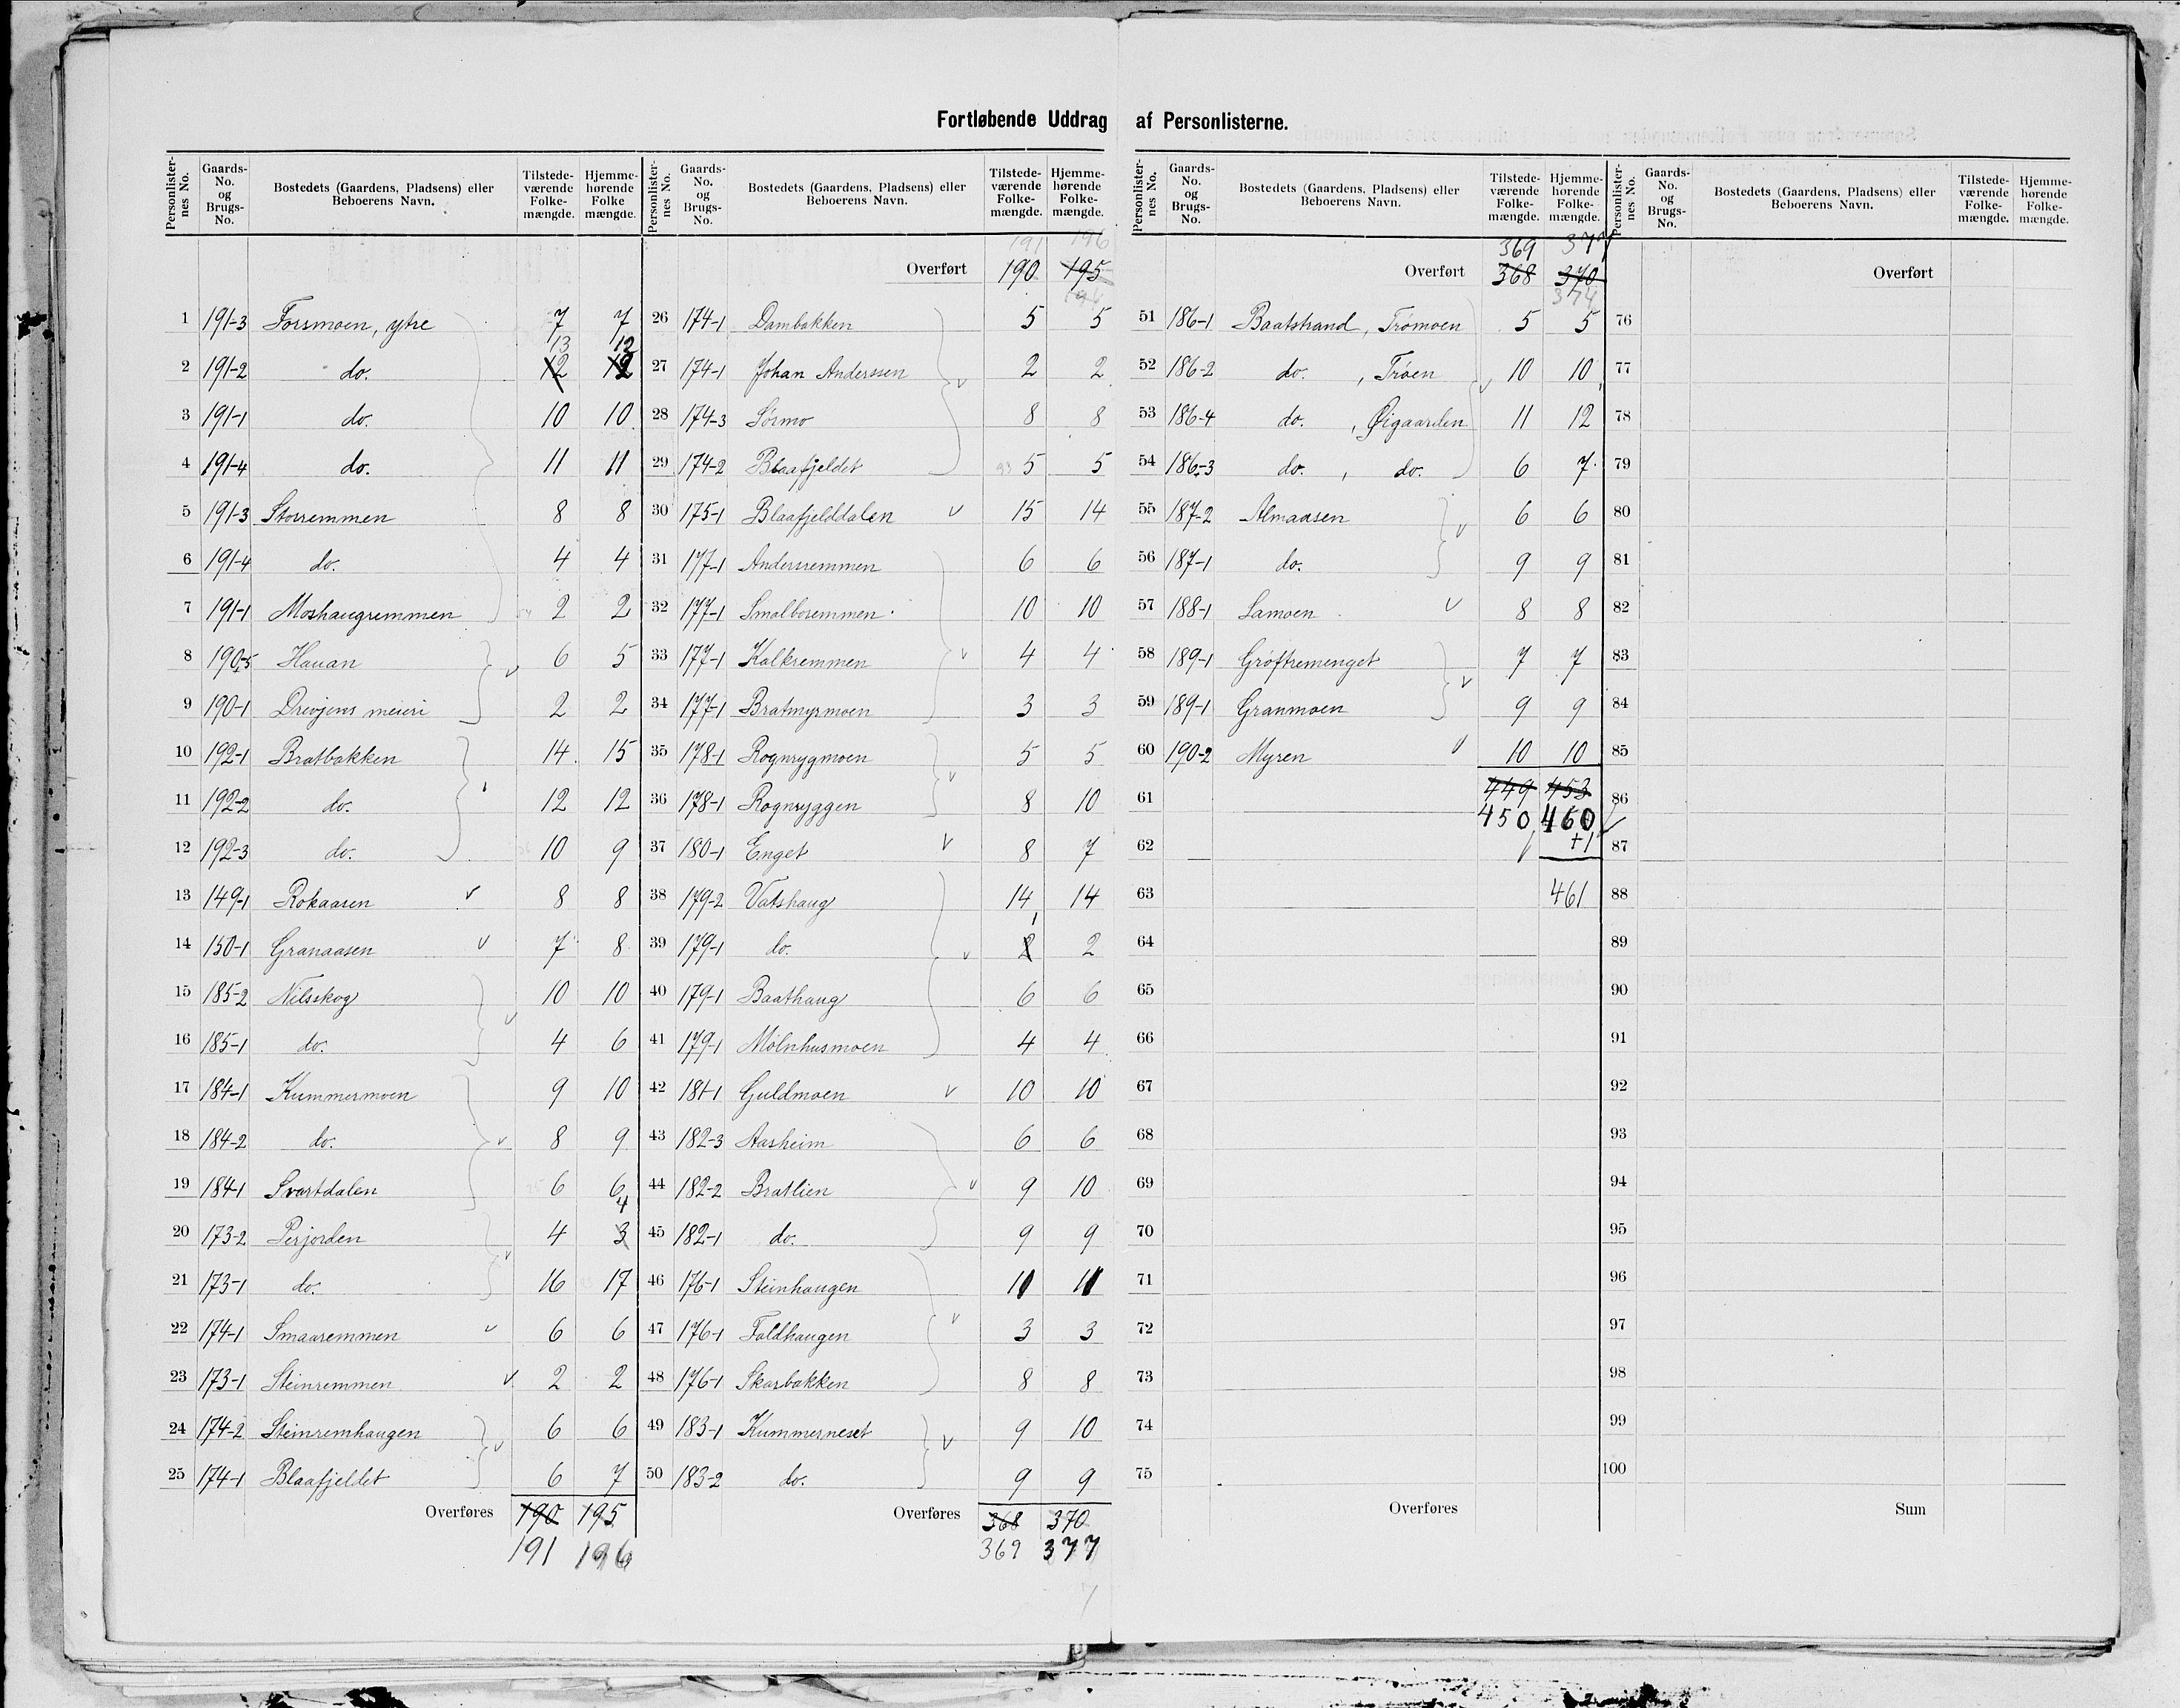 Fortløbende Uddrag af Personlisterne.
Personlister-nes No. Gaards-No. og Brugs-No. Bostedets (Gaardens, Pladsens) eller Beboerens Navn. Tilstede-værende Folke-mængde. Hjemme-hørende Folke mængde.
1 191-3 Forsmoen, ytre 7 7
13 12
2 191-2 do. 12 12
3 191-1 do. 10 10
4 191-4 do. 11 11
5 191-3 Storremmen 8 8
6 191-4 do. 4 4
7 191-1 Moshaugremmen 2 2
8 190-5 Hauan 6 5
9 190-1 Drevjens meieri 2 2
10 192-1 Bratbakken 14 15
11 192-2 do. 12 12
12 192-3 do. 10 9
13 149-1 Rokaasen 8 8
14 150-1 Granaasen 7 8
15 185-2 Nilsskog 10 10
16 185-1 do. 4 6
17 184-1 Kummermoen 9 10
18 184-2 do. 8 9
19 184-1 Svartdalen 6 6
4
20 173-2 Perjorden 4 3
21 173-1 do. 16 17
22 174-1 Smaaremmen 6 6
23 173-1 Steinremmen 2 2
24 174-2 Steinremhaugen 6 6
25 174-1 Blaafjeldet 6 7
Overføres 190 195
191 196
Personlister-nes No. Gaards-No. og Brugs-No. Bostedets (Gaardens, Pladsens) eller Beboerens Navn. Tilstede-værende Folke-mængde. Hjemme-hørende Folke-mængde.
191 196
Overført 190 195
196
26 174-1 Dambakken 5 5
27 174-1 Johan Anderssen 2 2
28 174-3 Sørmo 8 8
29 174-2 Blaafjeldet 5 5
30 175-1 Blaafjelddalen 15 14
31 177-1 Andersremmen 6 6
32 177-1 Smalboremmen 10 10
33 177-1 Kalkremmen 4 4
34 177-1 Bratmyrmoen 3 3
35 178-1 Rognrygmoen 5 5
36 178-1 Rognryggen 8 10
37 180-1 Enget 8 7
38 179-2 Vatshaug 14 14
1
39 179-1 do. 2 2
40 179-1 Baathaug 6 6
41 179-1 Mølnhusmoen 4 4
42 181-1 Guldmoen 10 10
43 182-3 Aasheim 6 6
44 182-2 Bratlien 9 10
45 182-1 do. 9 9
46 176-1 Steinhaugen 11 11
47 176-1 Foldhaugen 3 3
48 176-1 Skarbakken 8 8
49 183-1 Kummerneset 9 10
50 183-2 do. 9 9
Overføres 368 370
369 377
7
Personlister-nes No. Gaards-No. og Brugs-No. Bostedets (Gaardens, Pladsens) eller Beboerens Navn. Tilstede-værende Folke-mængde. Hjemme-hørende Folke-mængde.
369 377
Overført 368 370
374
51 186-1 Baatstrand, Trømoen 5 5
52 186-2 do. , Trøen 10 10
53 186-4 do. , Øigaarden 11 12
54 186-3 do. , do. 6 7
55 187-2 Almaasen 6 6
56 187-1 do. 9 9
57 188-1 Lamoen 8 8
58 189-1 Grøftremenget 7 7
59 189-1 Granmoen 9 9
60 190-2 Myren 10 10
449 453
61 450 460
62 +1
63 461
64
65
66
67
68
69
70
71
72
73
74
75
Overføres
Personlister-nes No. Gaards-No. og Brugs-No. Bostedets (Gaardens, Pladsens) eller Beboerens Navn. Tilstede-værende Folke-mængde. Hjemme-hørende Folke-mængde.
Overført
76
77
78
79
80
81
82
83
84
85
86
87
88
89
90
91
92
93
94
95
96
97
98
99
100
Sum